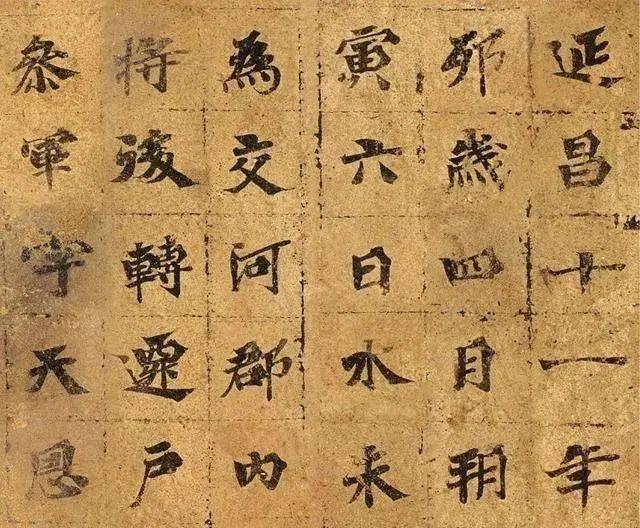 延昌十一年
卯歲四月朔
寅六日水未
為交河郡內
將後轉遷戶
參軍天恩